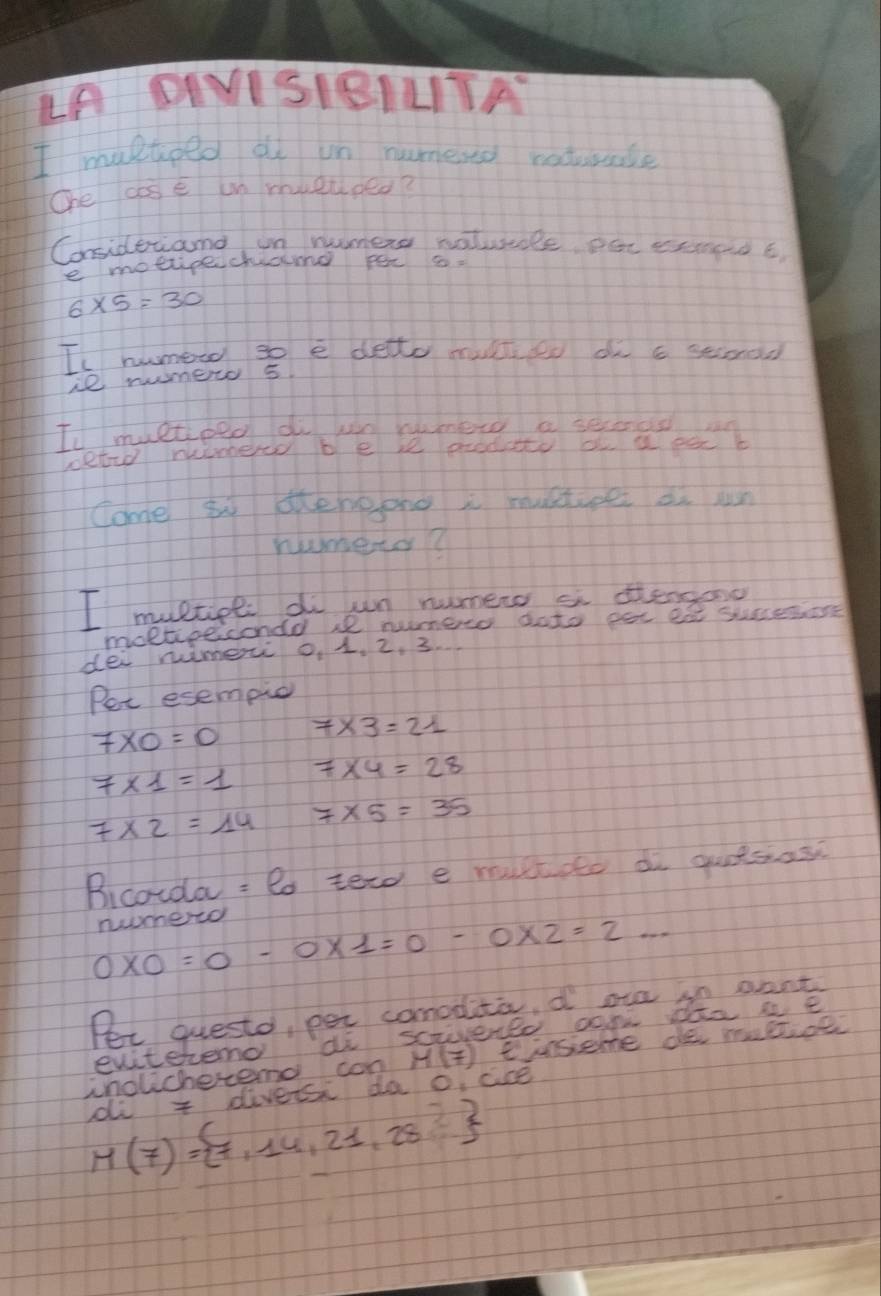 LA DIVISIBILITA'
I multiplo di un numero naturale
Che cos è un multiplo?
Consideriamo un numero naturale, per esempio 6,
e moltiplichiamo per 5=
6 x 5 = 30
Il numero 30 è detto multiplo di 6 secondo
il numero 5.
Il multiplo di un numero a secondo un
altro numero b e il prodotto di a per b
Come si ottengono i multipli di un
numero?
I multipli di un numero si ottengono
moltiplicondo il numero dato per la succesione
dei numeri 0, 1, 2, 3...
Per esempio
7x0=0 7x3=21
7x1=1 7x4=28
7x2=14 7x5=35
Ricorda = lo zero e multiplo di qualsiasi
numero
0x0=0 - 0x1=0 - 0x2=2 ...
Per questo, per comodità, d' ora in avanti
eviteremo di scriverlo ogni a e
indicheremo con M(7) l'insieme dei multipli
di 7 diversi da 0, cioe
M(7)={7, 14, 21, 28 }